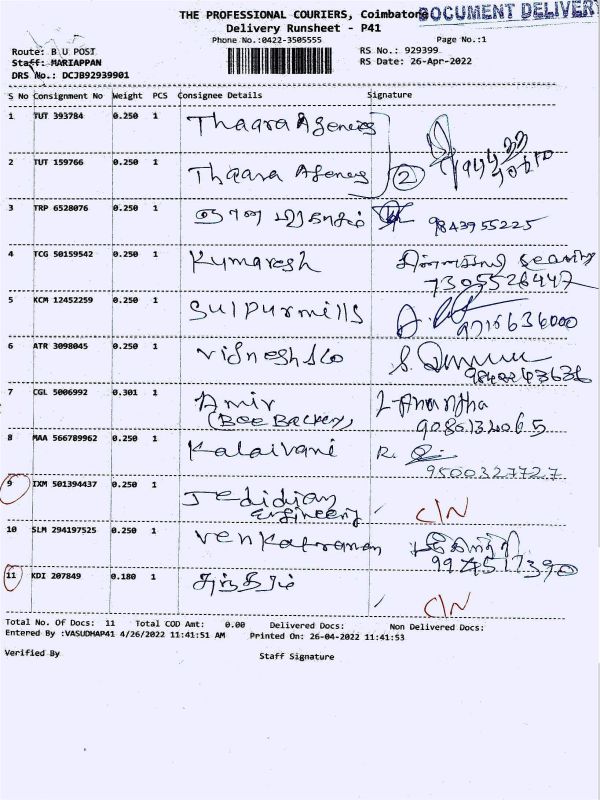 THE PROFESSIONAL COURIERS, Coimbatore
DOCUMENT DELIVERY
Delivery Runsheet - P41
Phone No.:0422-3505555
Page No.:1
Route: B U POST
RS No.: 929399
Staff: MARIAPPAN
RS Date: 26-Apr-2022
DRS No.: DCJB92939901
S No Consignment No Weight PCS Consignee Details Signature
1 TUT 393784 0.250 1 Thaara Agencies
2 TUT 159766 0.250 1 Thaara Agencies 2
3 TRP 6528076 0.250 1 9843955225
4 TCG 50159542 0.250 1 Kumaresh
7305526447
5 KCM 12452259 0.250 1 Sulpurmills
9715636000
6 ATR 3098045 0.250 1 Vignesh &co
7 CGL 5006992 0.301 1 Amir
8 MAA 566789962 0.250 1 Kalaivani R.
9500327727
9 IXM 501394437 0.250 1 Jedidiyan
Engineering C/N
10 SLM 294197525 0.250 1 Venkatraman
11 KDI 207849 0.180 1
C/N
Total No. Of Docs: 11 Total COD Amt: 0.00 Delivered Docs: Non Delivered Docs:
Entered By :VASUDHAP41 4/26/2022 11:41:51 AM Printed On: 26-04-2022 11:41:53
Verified By Staff Signature